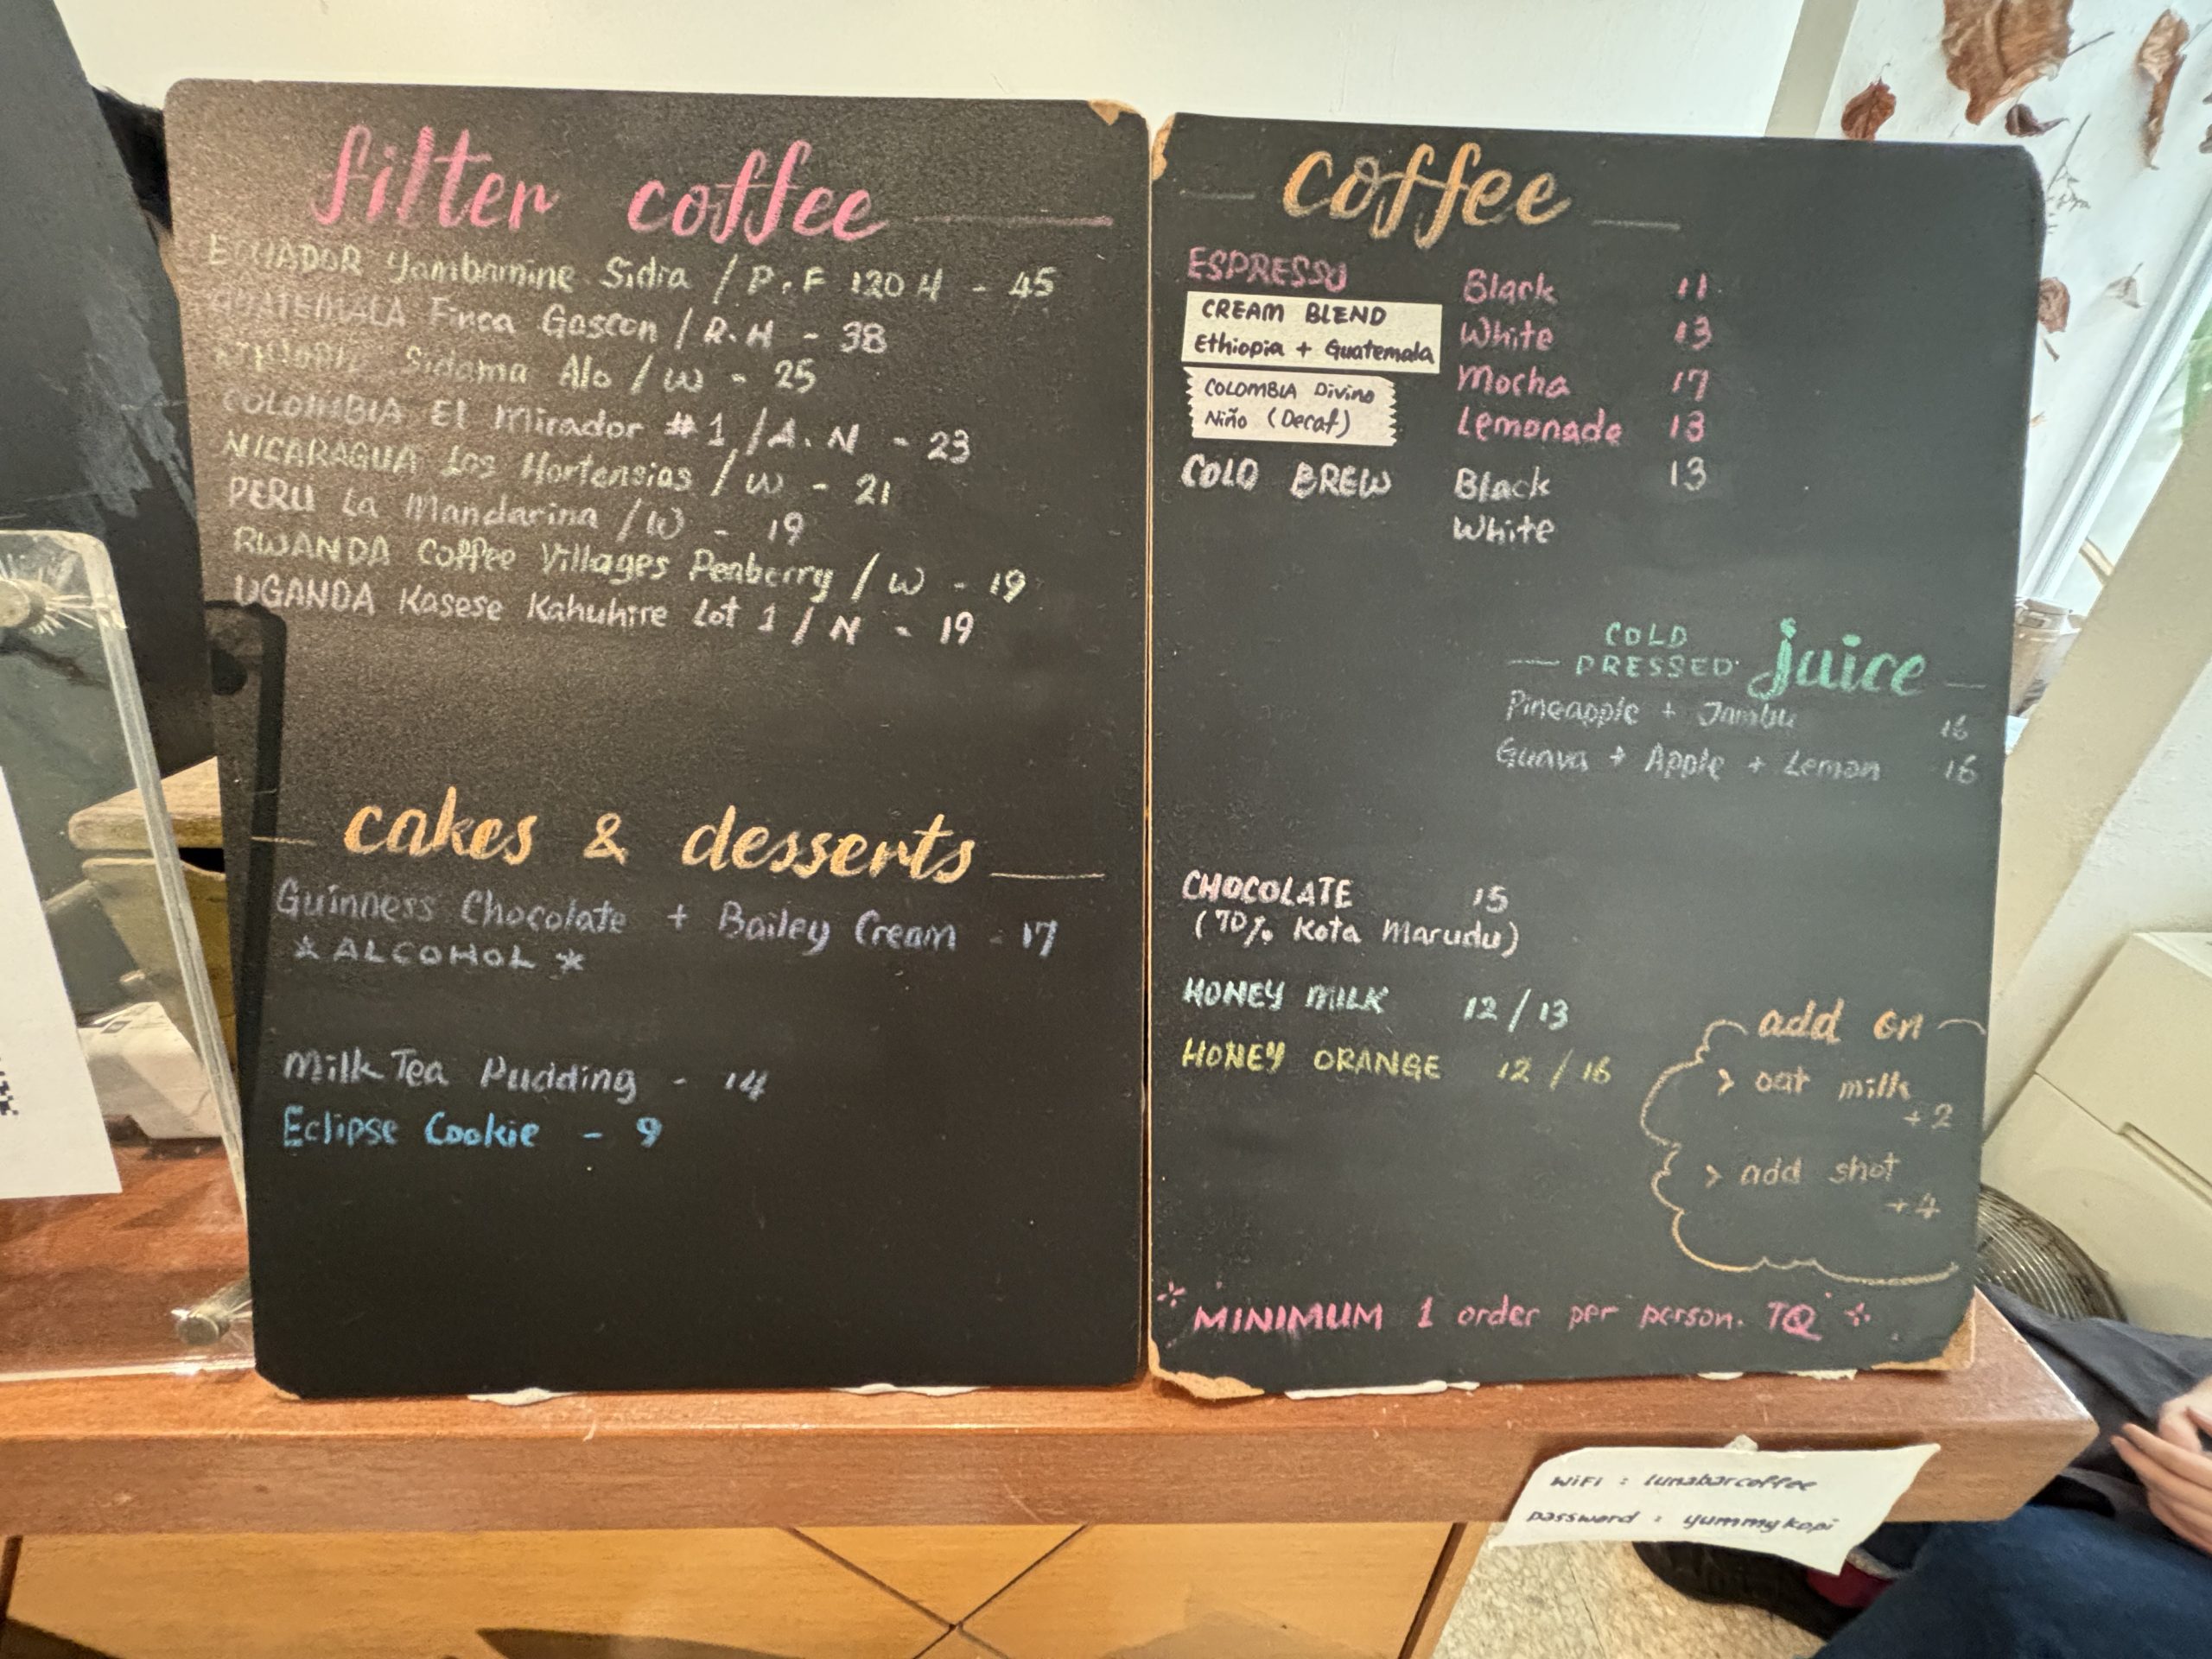 filter coffee
ECUADOR Yambamine Sidra / P.F 120H - 45
GUATEMALA Finca Gascon / R.H - 38
Sidama Alo / W - 25
COLOMBIA El Mirador #1 / A.N - 23
NICARAGUA Los Hortensias / W - 21
PERU La Mandarina / W - 19
RWANDA Coffee Villages Peaberry / W - 19
UGANDA Kasese Kahuhire Lot 1 / N - 19
cakes & desserts
Guinness Chocolate + Bailey Cream - 17
*ALCOHOL*
Milk Tea Pudding - 14
Eclipse Cookie - 9
coffee
ESPRESSO Black 11
CREAM BLEND
Ethiopia + Guatemala
White 13
COLOMBIA Divino
Niño (Decaf)
Mocha 17
Lemonade 13
COLD BREW Black 13
White
COLD
PRESSED juice
Pineapple + Jambu 16
Guava + Apple + Lemon 16
CHOCOLATE 15
(70% Kota Marudu)
HONEY MILK 12/13
HONEY ORANGE 12/16
add on
> oat milk
+2
> add shot
+4
MINIMUM 1 order per person. TQ
WiFi : lunabarcoffee
password : yummykopi